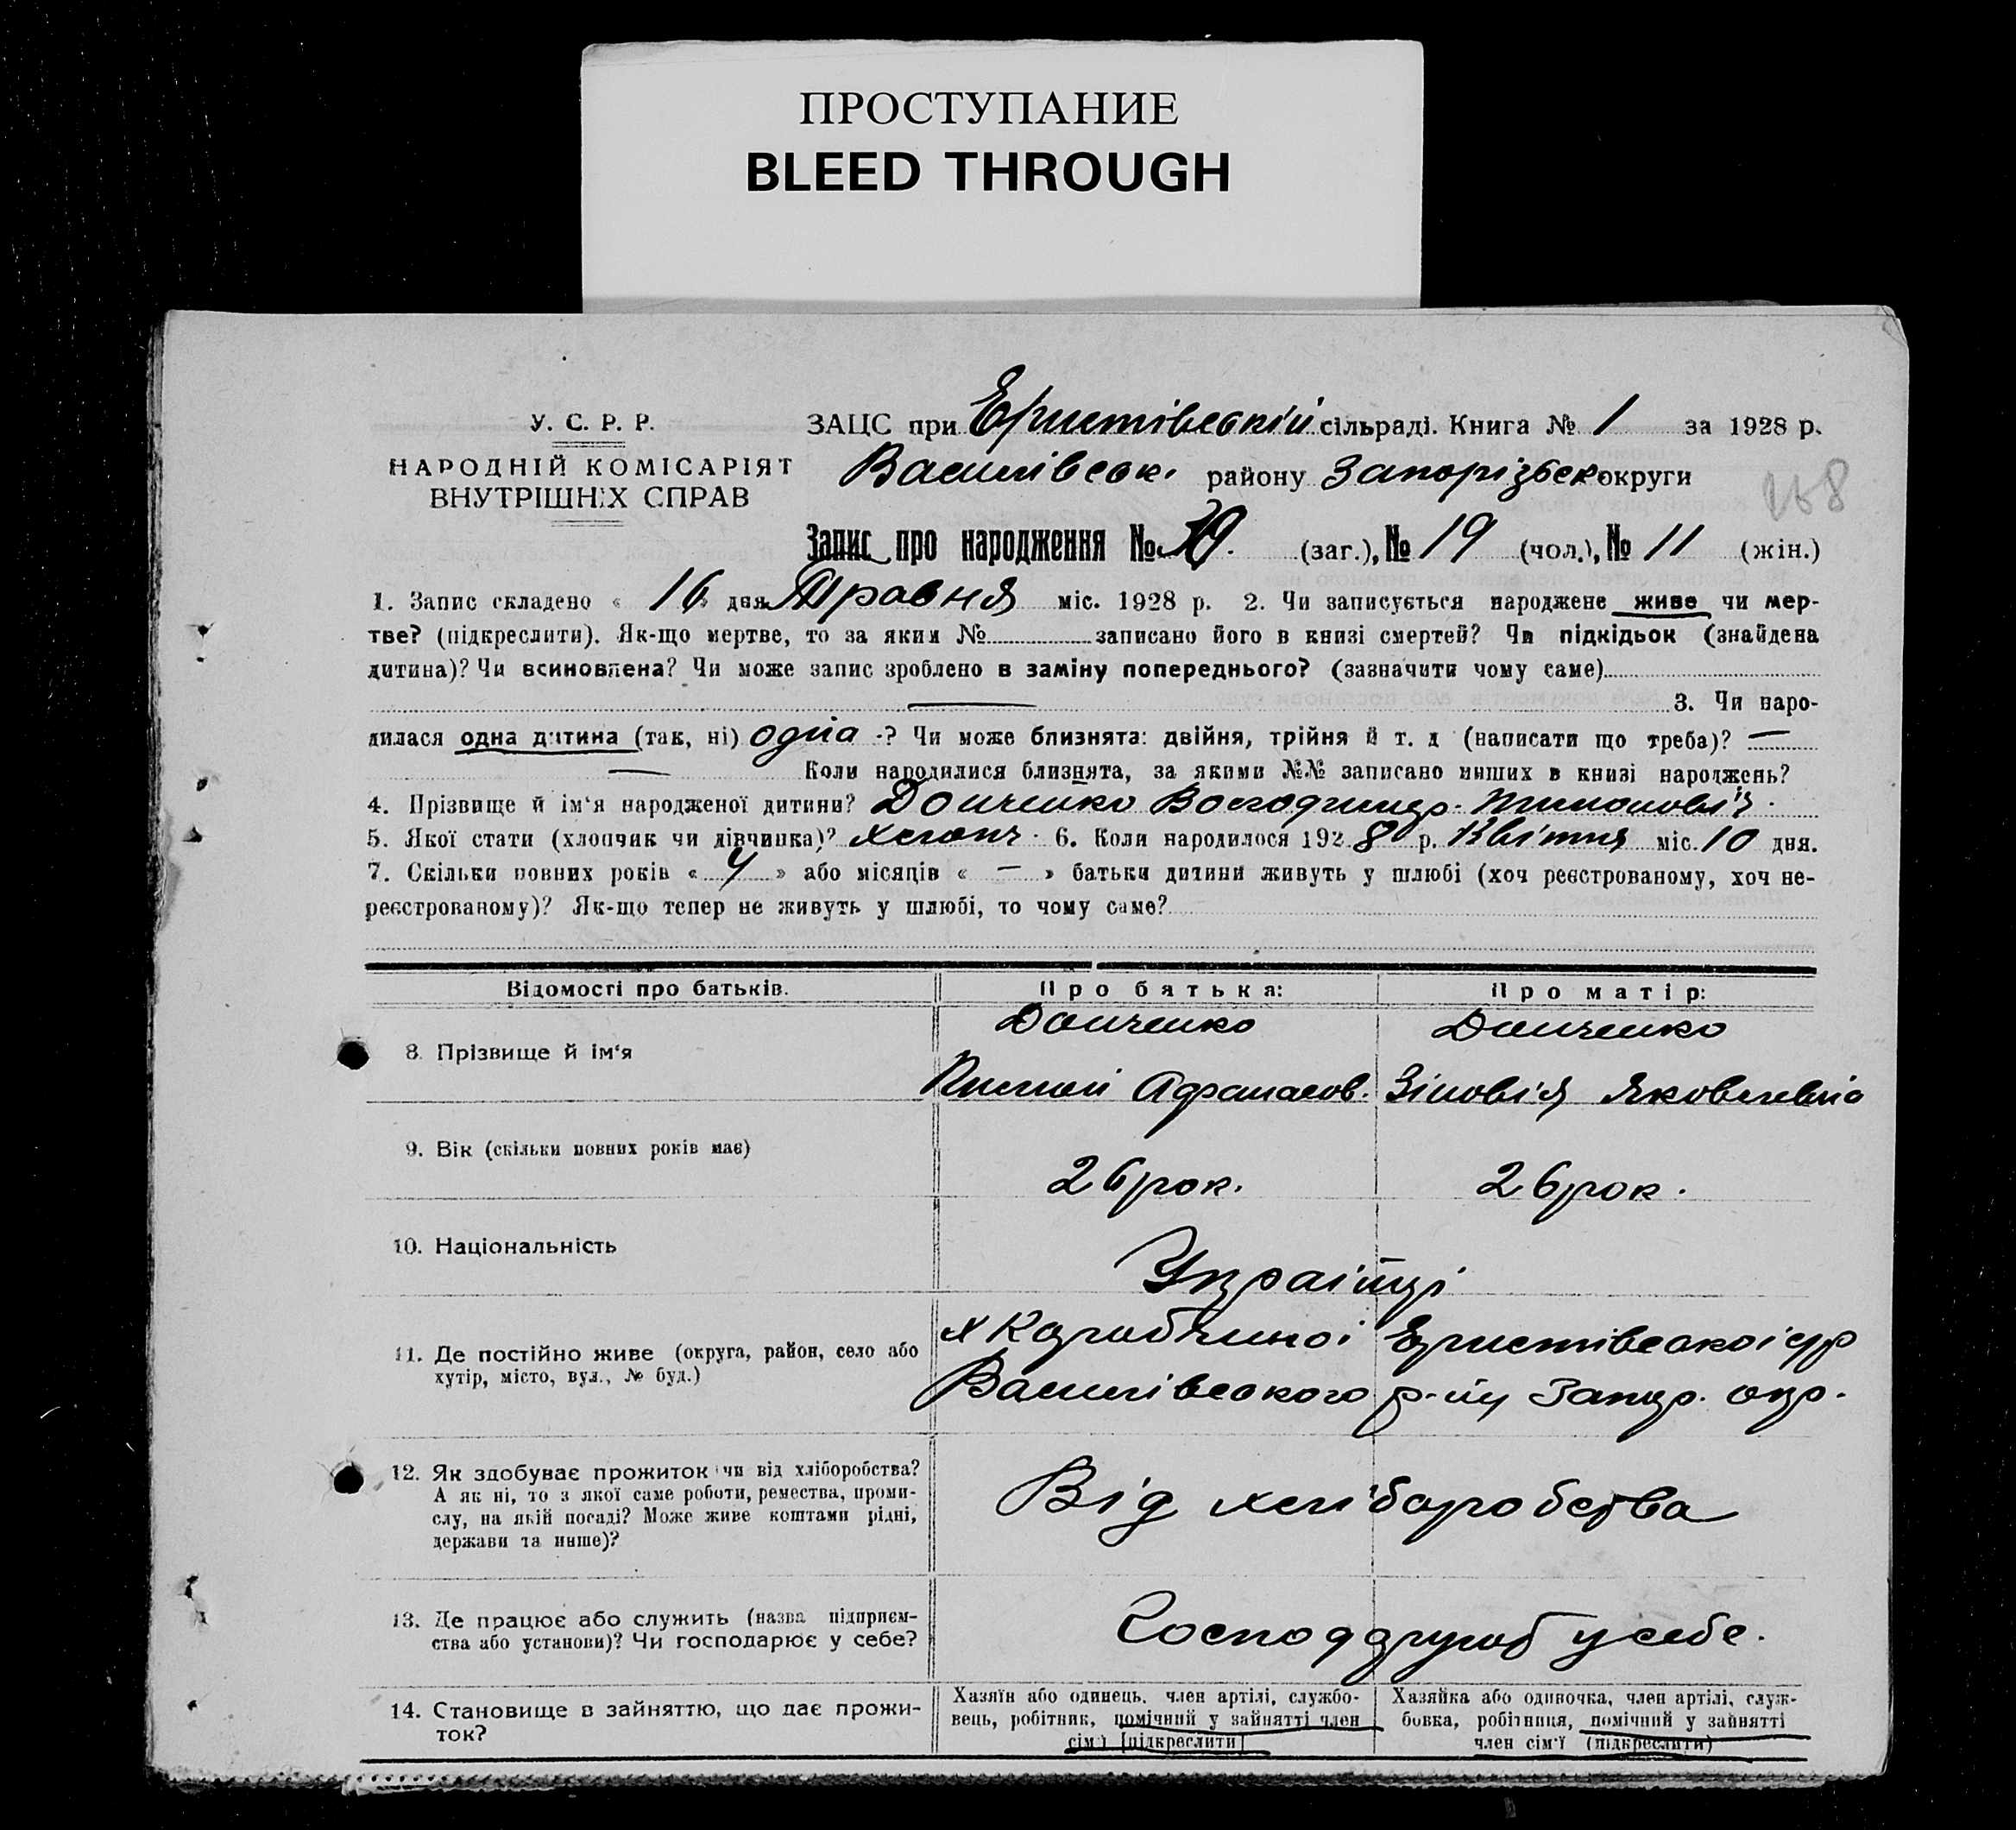 ПРОСТУПАНИЕ
BLEED THROUGH
У. С. Р. Р.
НАРОДНІЙ КОМІСАРІЯТ
ВНУТРІШНІХ СПРАВ
ЗАЦС при Еристівській сільраді. Книга № 1 за 1928 р.
Василівськ. району Запорізьск округи
168
Запис про народження № 30. (заг.), № 19 (чол.), № 11 (жін.)
1. Запис складено « 16 » дня Травня міс. 1928 р. 2. Чи записується народжене живе чи мер-
тве? (підкреслити). Як-що мертве, то за яким № записано його в книзі смертей? Чи підкідьок (знайдена
дитина)? Чи всиновлена? Чи може запис зроблено в заміну попереднього? (зазначити чому саме)
— 3. Чи наро-
дилася одна дитина (так, ні) одна -? Чи може близнята: двійня, трійня й т. д (написати що треба)? —
— Коли народилися близнята, за якими №№ записано инших в книзі народжень?
4. Прізвище й ім‘я народженої дитини? Донченко Володимир Тимонович.
5. Якої стати (хлопчик чи дівчинка)? хлопч. 6. Коли народилося 1928 р. Квітня міс. 10 дня.
7. Скільки повних років « 4 » або місяців « — » батьки дитини живуть у шлюбі (хоч реєстрованому, хоч не-
реєстрованому)? Як-що тепер не живуть у шлюбі, то чому саме?
Відомості про батьків. Про батька: Про матір:
8. Прізвище й ім‘я
Донченко Донченко
Афанасов. Зіновія Яковлевна
9. Вік (скільки повних років має)
26 рок. 26 рок.
10. Національність
Українці
11. Де постійно живе (округа, район, село або
хутір, місто, вул., № буд.)
х Еристівської с/р
Василівського р-ну Запор. окр.
12. Як здобуває прожиток чи від хліборобства?
А як ні, то з якої саме роботи, ремества, проми-
слу, на якій посаді? Може живе коштами рідні,
держави та инше)?
Від хліборобства
13. Де працює або служить (назва підприєм-
ства або установи)? Чи господарює у себе?
у себе.
14. Становище в зайняттю, що дає прожи-
ток?
Хазяїн або одинець, член артілі, службо-
вець, робітник, помічний у зайнятті член
сім‘ї [підкреслити]
Хазяйка або одиночка, член артілі, служ-
бовка, робітниця, помічний у зайнятті
член сім‘ї (підкреслити)